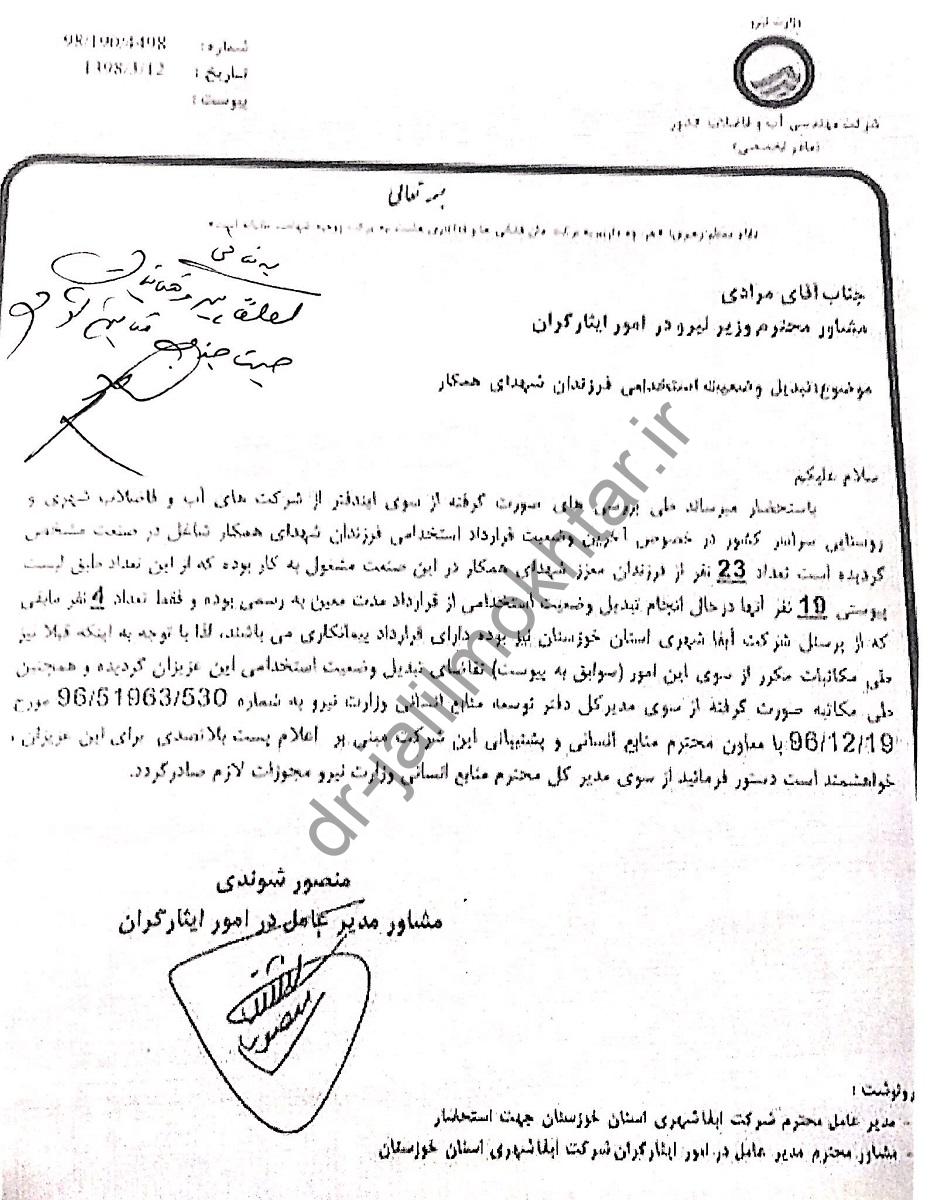 وزارت نیرو
شرکت مهندسی آب و فاضلاب کشور
(مادر تخصصی)
شماره: 98/190/4498
تاریخ: 1398/3/12
پیوست:
بسمه تعالی
جناب آقای مرادی
مشاور محترم وزیر نیرو در امور ایثارگران
موضوع: تبدیل وضعیت استخدامی فرزندان شهدای همکار
سلام علیکم
باستحضار میرساند طی بررسی های صورت گرفته از سوی ایندفتر از شرکت های آب و فاضلاب شهری و
روستایی سراسر کشور در خصوص آخرین وضعیت قرارداد استخدامی فرزندان شهدای همکار شاغل در صنعت مشخص
گردیده است تعداد 23 نفر از فرزندان معزز شهدای همکار در این صنعت مشغول به کار بوده که از این تعداد طبق لیست
پیوستی 19 نفر آنها درحال انجام تبدیل وضعیت استخدامی از قرارداد مدت معین به رسمی بوده و فقط تعداد 4 نفر مابقی
که از پرسنل شرکت آبفا شهری استان خوزستان نیز بوده دارای قرارداد پیمانکاری می باشند، لذا با توجه به اینکه قبلا نیز
طی مکاتبات مکرر از سوی این امور (سوابق به پیوست) تقاضای تبدیل وضعیت استخدامی این عزیزان گردیده و همچنین
طی مکاتبه صورت گرفته از سوی مدیرکل دفتر توسعه منابع انسانی وزارت نیرو به شماره 96/51963/530 مورخ
96/12/19 با معاون محترم منابع انسانی و پشتیبانی این شرکت مبنی بر اعلام پست بلاتصدی برای این عزیزان ،
خواهشمند است دستور فرمائید از سوی مدیر کل محترم منابع انسانی وزارت نیرو مجوزات لازم صادرگردد.
dr-jalilmokhtar.ir
منصور شوندی
مشاور مدیر عامل در امور ایثارگران
رونوشت :
- مدیر عامل محترم شرکت ابفا شهری استان خوزستان جهت استحضار
- مشاور محترم مدیر عامل در امور ایثارگران شرکت ابفا شهری استان خوزستان